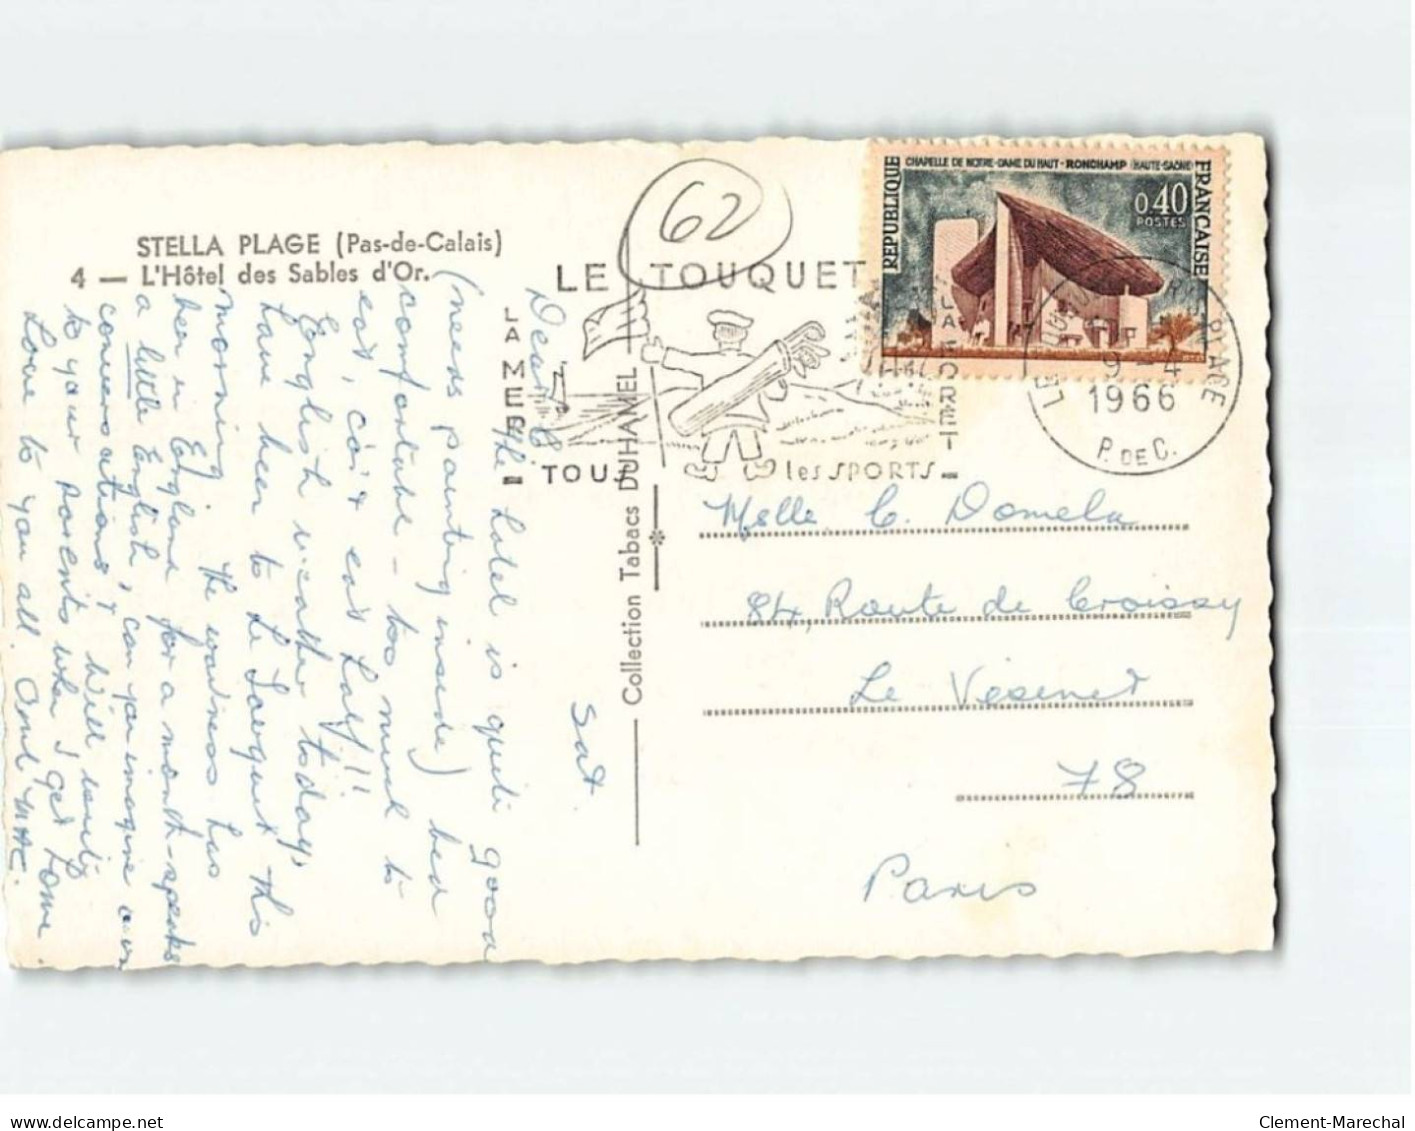 STELLA PLAGE (Pas-de-Calais)
4 — L'Hôtel des Sables d'Or.
62
LE TOUQUET
LA MER
LA FORET
TOUS les SPORTS
RÉPUBLIQUE FRANÇAISE
CHAPELLE DE NOTRE-DAME DU HAUT - RONCHAMP (HAUTE-SAÔNE)
0,40
POSTES
LE TOUQUET PARIS PLAGE
9 - 4
1966
P. DE C.
Collection Tabacs DUHAMEL
Sat.
Dear C
The hotel is quite good
(needs painting inside) bed
comfortable - too much to
eat, can't eat half!!
English weather today,
have been to Le Touquet this
morning. The waitress has
been in England for a month - speaks
a little English, can you imagine our
conversations? Will write
to your parents when I get home.
Love to you all.
Melle. C. Domela
84, Route de Croissy
Le Vésinet
78
Paris
Clement-Marechal